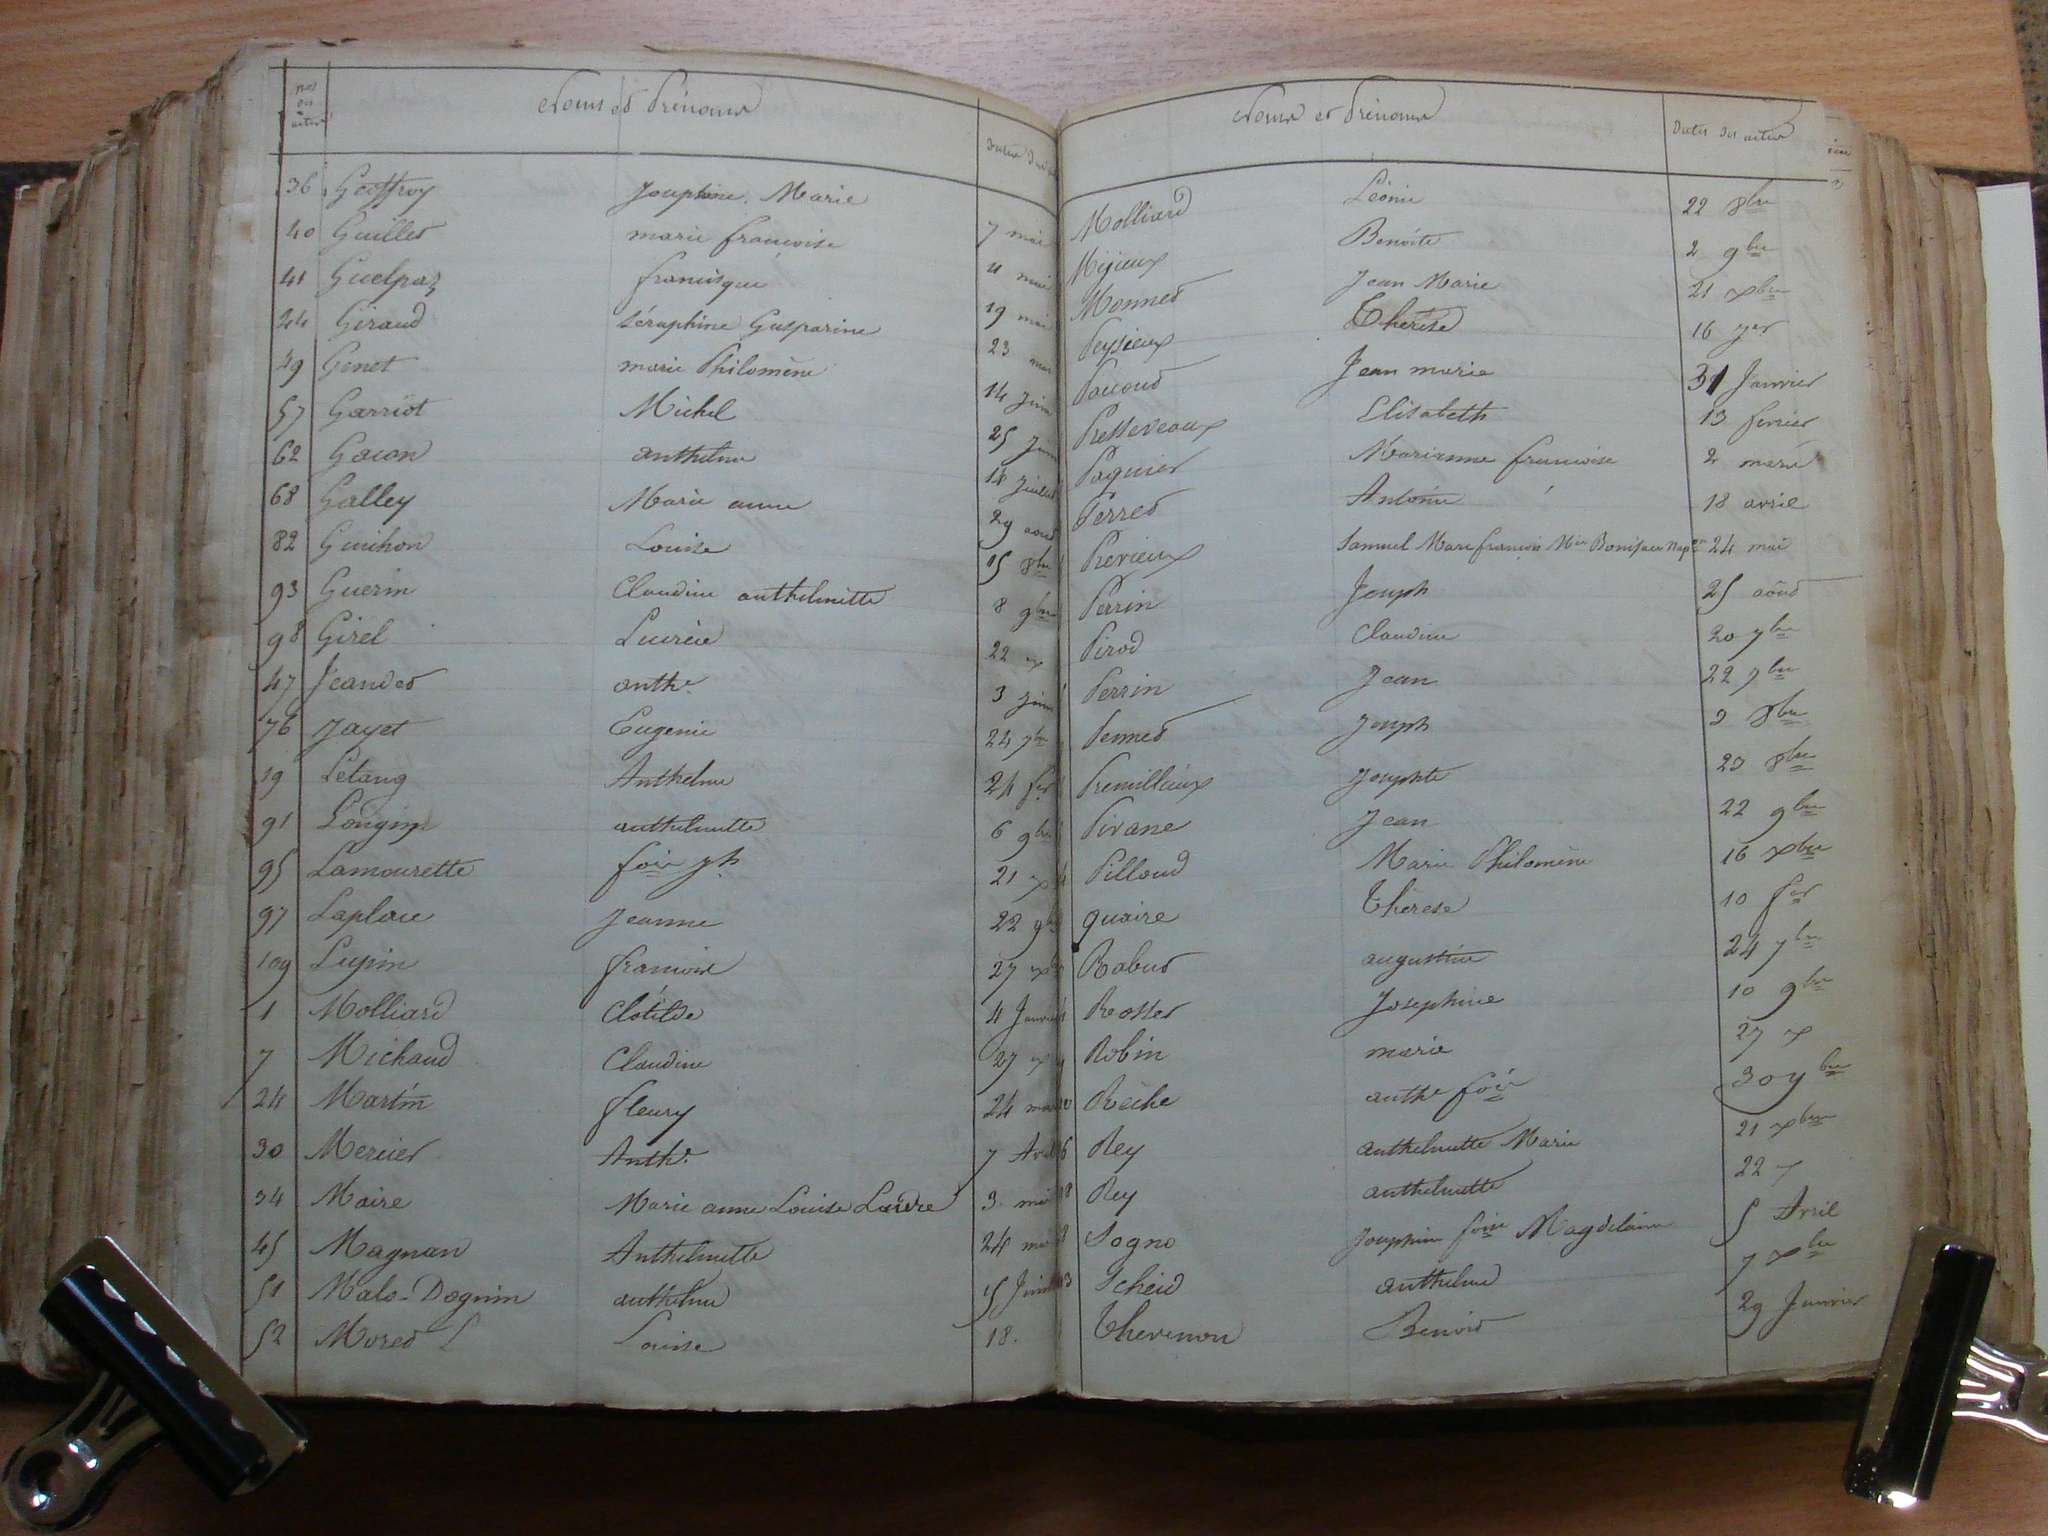 nos des actes Noms et Prénoms Dates des
36 Geoffroy Josephine Marie 7 mai
40 Guillet marie francoise 11 mai
41 Guelpaz francisque 19 mai
44 Giraud Séraphine Gasparine 23 mai
49 Genet marie Philomène 14 juin
57 Garriot Michel 25 juin
62 Gacon anthelme 14 juillet
68 Galley Marie anne 29 aout
82 Guichon Louise 15 8bre
93 Guerin Claudine anthelmette 8 9bre
98 Girel Lucrèce 22 x
47 Jeandet anthe 3 juin
76 Jayet Eugenie 24 7bre
19 Letang Anthelme 24 fer
91 Longin anthelmette 6 9bre
95 Lamourette fois jh 21 x
97 Laplace Jeanne 22 9bre
109 Lupin francois 27 xbre
1 Molliard Clotilde 4 Janvier
7 Michaud Claudine 27 x
24 Martin fleury 24 mars
30 Mercier Anthe 7 Avril
34 Maire Marie anne Louise 3 mai
45 Magnan Anthelmette 24 mai
51 Malo-Dognin anthelme 15 Juin
52 Moret L Louise 18.
Noms et Prénoms Dates des actes
Molliard Léonie 22 8bre
Mijieux Benoite 2 9bre
Monnet Jean Marie 21 xbre
Peysieux Therèse 16 jer
Paccoud Jean marie 31 Janvier
Presseveaux Elisabeth 13 fevrier
Paquier Marianne francoise 2 mars
Perret Antoine 18 avril
Previeux Samuel Marc françois Mie Boniface Napon 24 mai
Perrin Joseph 25 août
Pirod Claudine 20 7bre
Perrin Jean 22 9bre
Pennet Joseph 3 8bre
Premillieux Josephte 23 8bre
Pivane Jean 22 9bre
Pilloud Marie Philomène 16 xbre
quaire Thérese 10 fer
Rabut augustine 24 7bre
Rosset Josephine 10 9bre
Robin marie 27 x
Reiche anthe foise 30 7bre
Rey anthelmette Marie 21 xbre
Rey anthelmette 22
Sogno Josephine foise Magdelaine 5 Avril
Scheid anthelme 7 xbre
Thevenon Benoit 29 Janvier